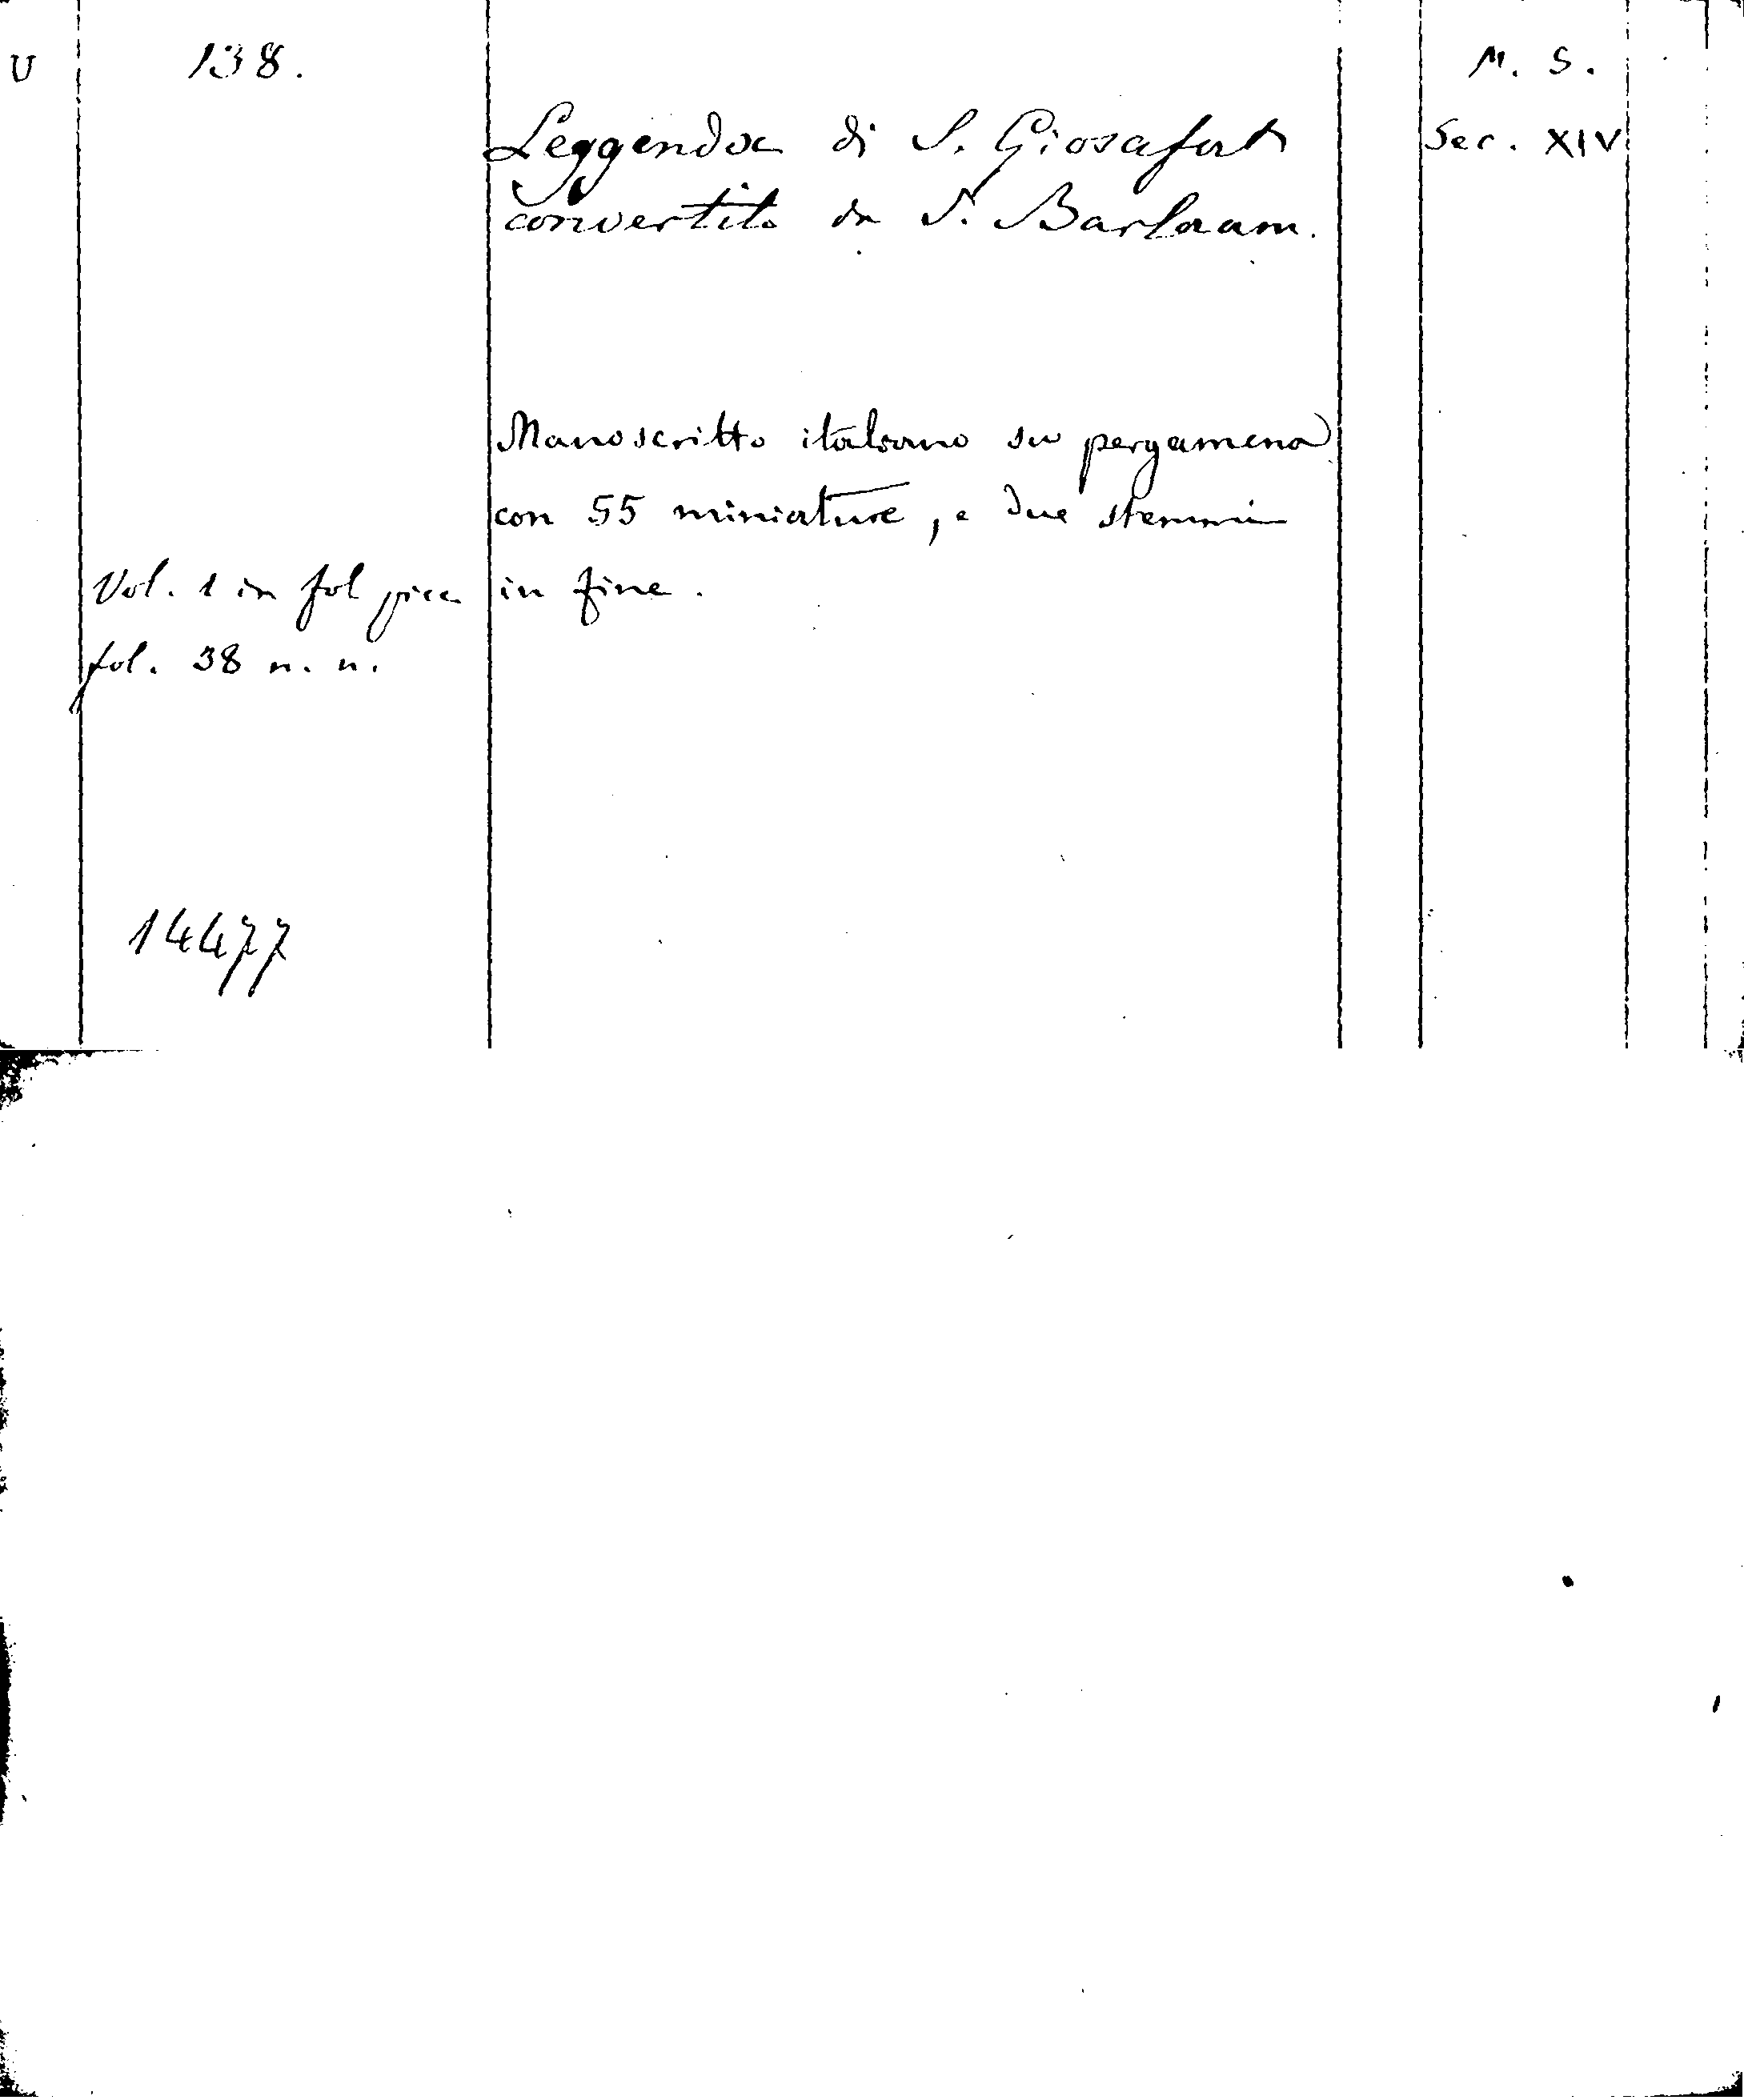 U
138.
M. S.
Sec. XIV
Leggenda di S. Giosafat
convertito da S. Barlaam.
Manoscritto italiano su pergamena
con 55 miniature, e due stemmi
in fine.
Vol. 1 in fol picc
fol. 38 n. n.
14477